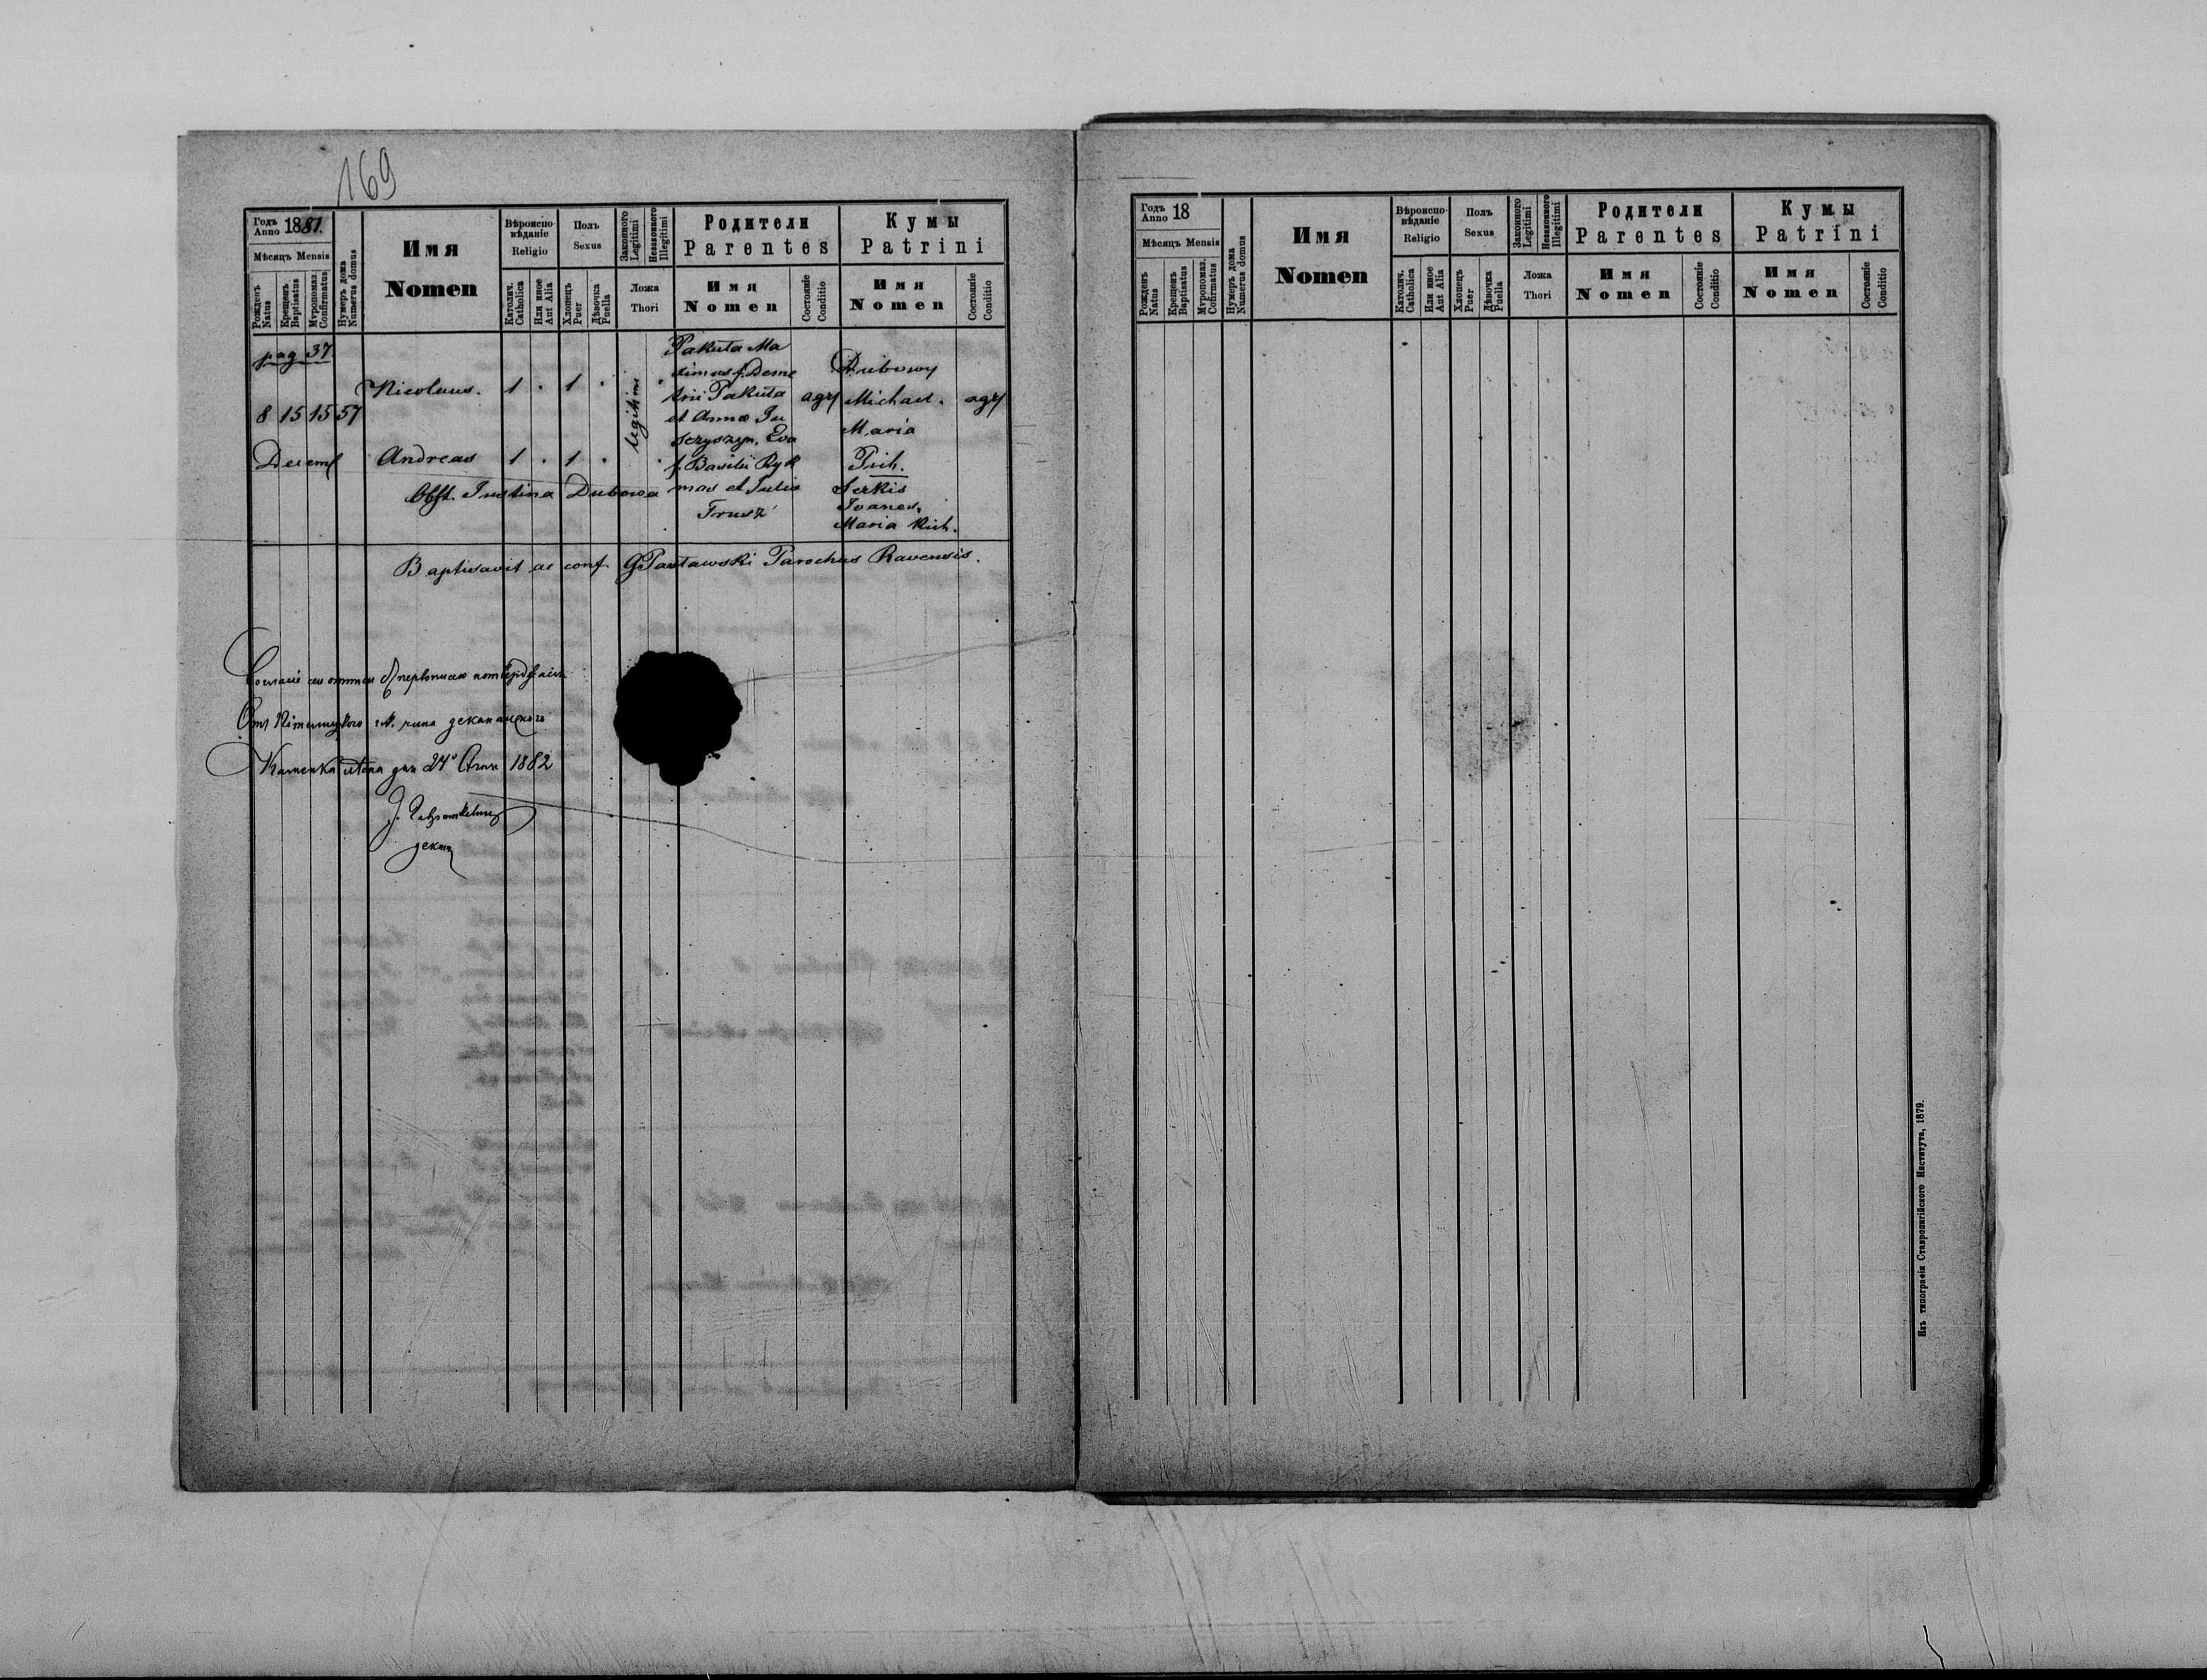 169
Годъ Anno 1881.
Мѣсяцъ Mensis
Рожденъ Natus
Крещенъ Baptisatus
Мѵропомаз. Confirmatus
Нумеръ дома Numerus domus
Имя
Nomen
Вѣроиспо-
вѣданіе
Religio
Католич. Catholica
Или иное Aut Alia
Полъ
Sexus
Хлопецъ Puer
Дѣвочка Puella
Законного Legitimi
Незаконного Illegitimi
Ложа
Thori
Родители
Parentes
Имя
Nomen
Состояніе Conditio
Кумы
Patrini
Имя
Nomen
Состояніе Conditio
pag 37
8 15 15 57
Decemb
Nicolaus. 1 . 1 .
Andreas 1 . 1 .
Obst. Justina Dubowa
legitimi
Pakuta Ma
ximus f. Deme
trii Pakuta
et Anna
Eva
f. Basilii Ryk
mas et Julia
Trusz
agr
Dubowy
Michael.
Maria
Prih.
Serkis
Joanes.
Maria Rich.
agr
Baptisavit ac conf. G Pastawski Parochus Ravensis.
Каменка дня 24 1882
декан
Годъ Anno 18
Мѣсяцъ Mensis
Рожденъ Natus
Крещенъ Baptisatus
Мѵропомаз. Confirmatus
Нумеръ дома Numerus domus
Имя
Nomen
Вѣроиспо-
вѣданіе
Religio
Католич. Catholica
Или иное Aut Alia
Полъ
Sexus
Хлопецъ Puer
Дѣвочка Puella
Законного Legitimi
Незаконного Illegitimi
Ложа
Thori
Родители
Parentes
Имя
Nomen
Состояніе Conditio
Кумы
Patrini
Имя
Nomen
Состояніе Conditio
Изъ типографіи Ставропигійского Института, 1879.